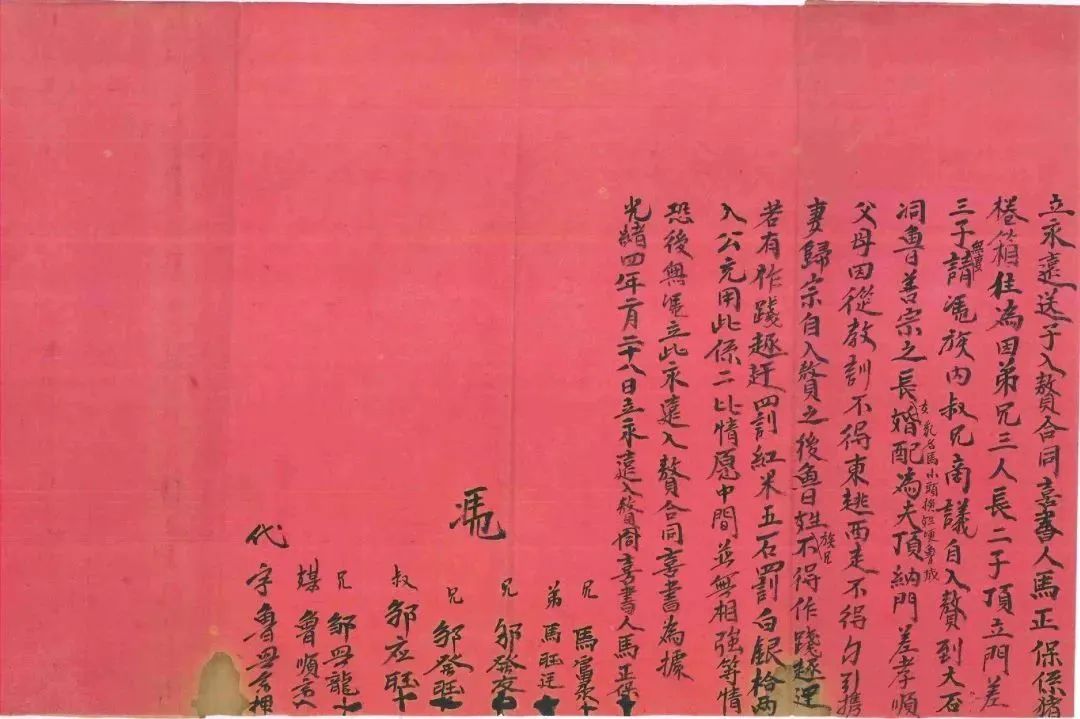 立永遠送子入贅合同喜書人馬正保係猪
棬箱住為因弟兄三人長二子頂立門差
三子無妻請馮族內叔兄商議自入贅到大石
洞魯善宗之長婚配為夫頂納門差孝順
女乳名馬小頭換姓更魯成
父母因從教訓不得東逃西走不得勾引携
妻歸宗自入贅之後魯姓族兄不得作踐趕逐
若有作踐趕逐罰紅米五石罰白銀拾兩
入公充用此係二比情愿中間並無相強等情
恐後無憑立此永遠入贅合同喜書為據
光緒四年二月二十八日立永遠入贅合同喜書人馬正保十
兄 馬富
弟 馬旺廷 十
兄 邹發 十
憑 兄 邹發旺 十
叔 邹应旺 十
兄 邹 龍 十
媒 魯順
代字魯 押